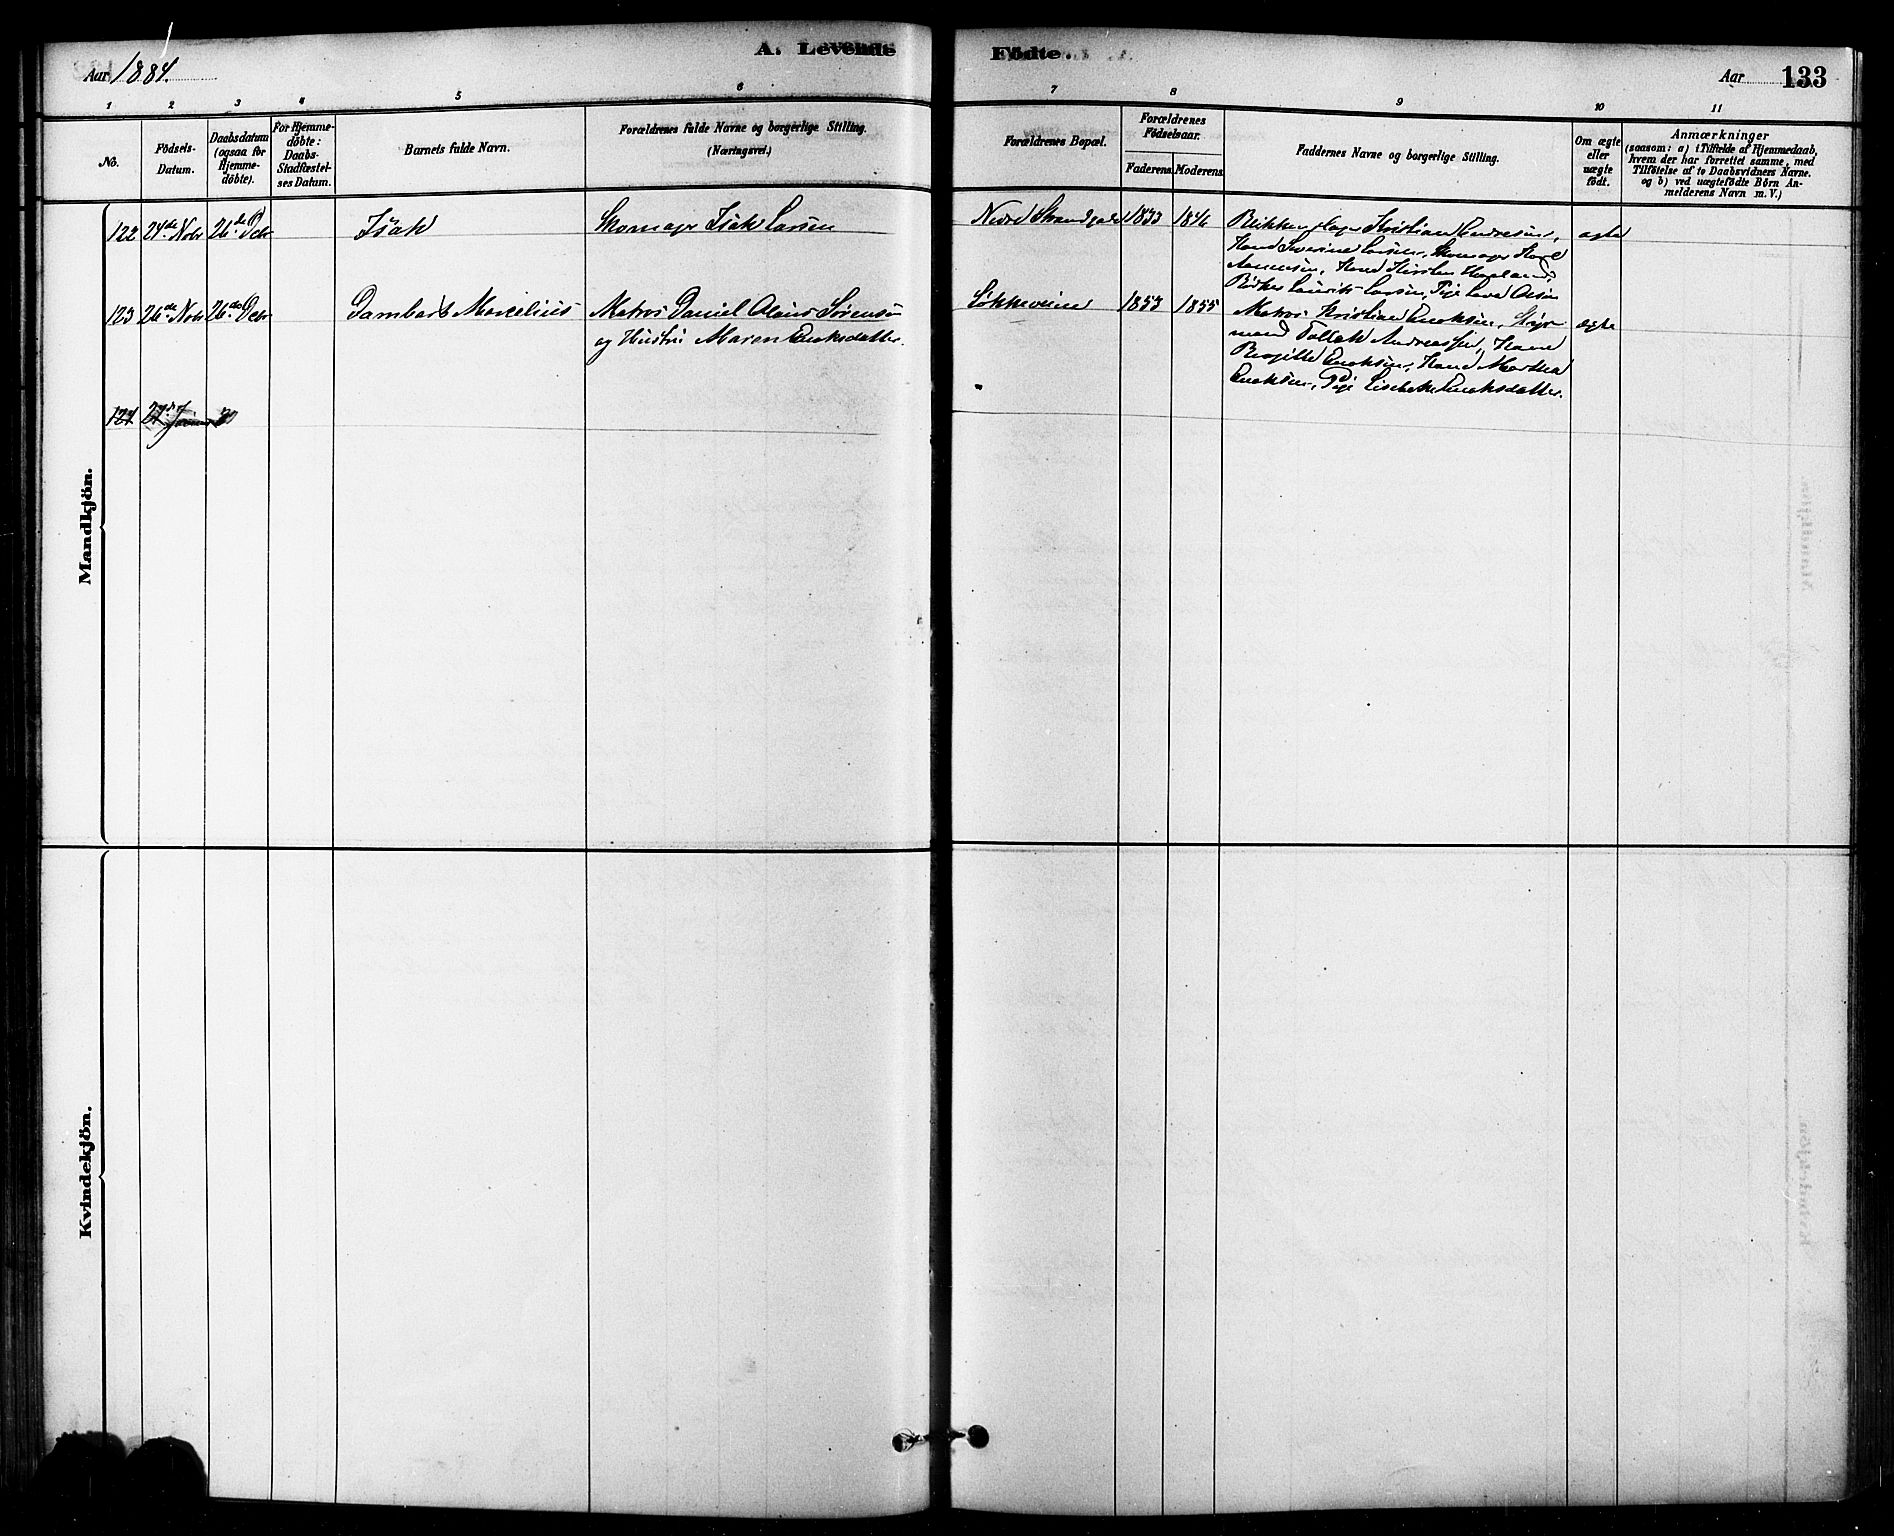 Aar 1884.
A. Levende
Fødte.
Aar
133
1 2 3 4 5 6
7 8 9 10 11
No.
Födsels-
Datum.
Daabsdatum
(ogsaa for
Hjemme-
döbte).
For Hjemme-
döbte:
Daabs-
Stadfæstel-
ses Datum.
Barnets fulde Navn.
Forældrenes fulde Navne og borgerlige Stilling.
(Næringsvei.)
Forældrenes Bopæl.
Forældrenes
Födselsaar.
Faderens. Moderens.
Faddernes Navne og borgerlige Stilling.
Om ægte
eller
uægte
födt.
Anmærkninger
(saasom: a) i Tilfælde af Hjemmedaab,
hvem der har forrettet samme, med
Tilföielse af to Daabsvidners Navne.
og b) ved uægtefödte Börn An-
melderens Navn m. V.)
Mandkjön.
122 24de Nobr 26de Dcbr Isak Skomager Isak Larsen
Nedre Strandgade 1833 1846
Blikkenslager Kristian Endresen,
Kone Severine Larsen, Skomager Karl
Kone Kirsten
Laurits Larsen, Pige Olsen
ægte
123 26de Nobr 26de Dcbr Dambart Marcelius Matros Daniel Olaus Sørensen
og Hustru Maren Enoksdatter.
Løkkeveien 1853 1855
Matros Kristian Enoksen, Styr-
mand Tollak Andreassen, Kone
Bergitte Enoksen, Kone Martha
Enoksen, Pige Lisbeth Enoksdatter.
ægte
124 27de
Kvindekjön.